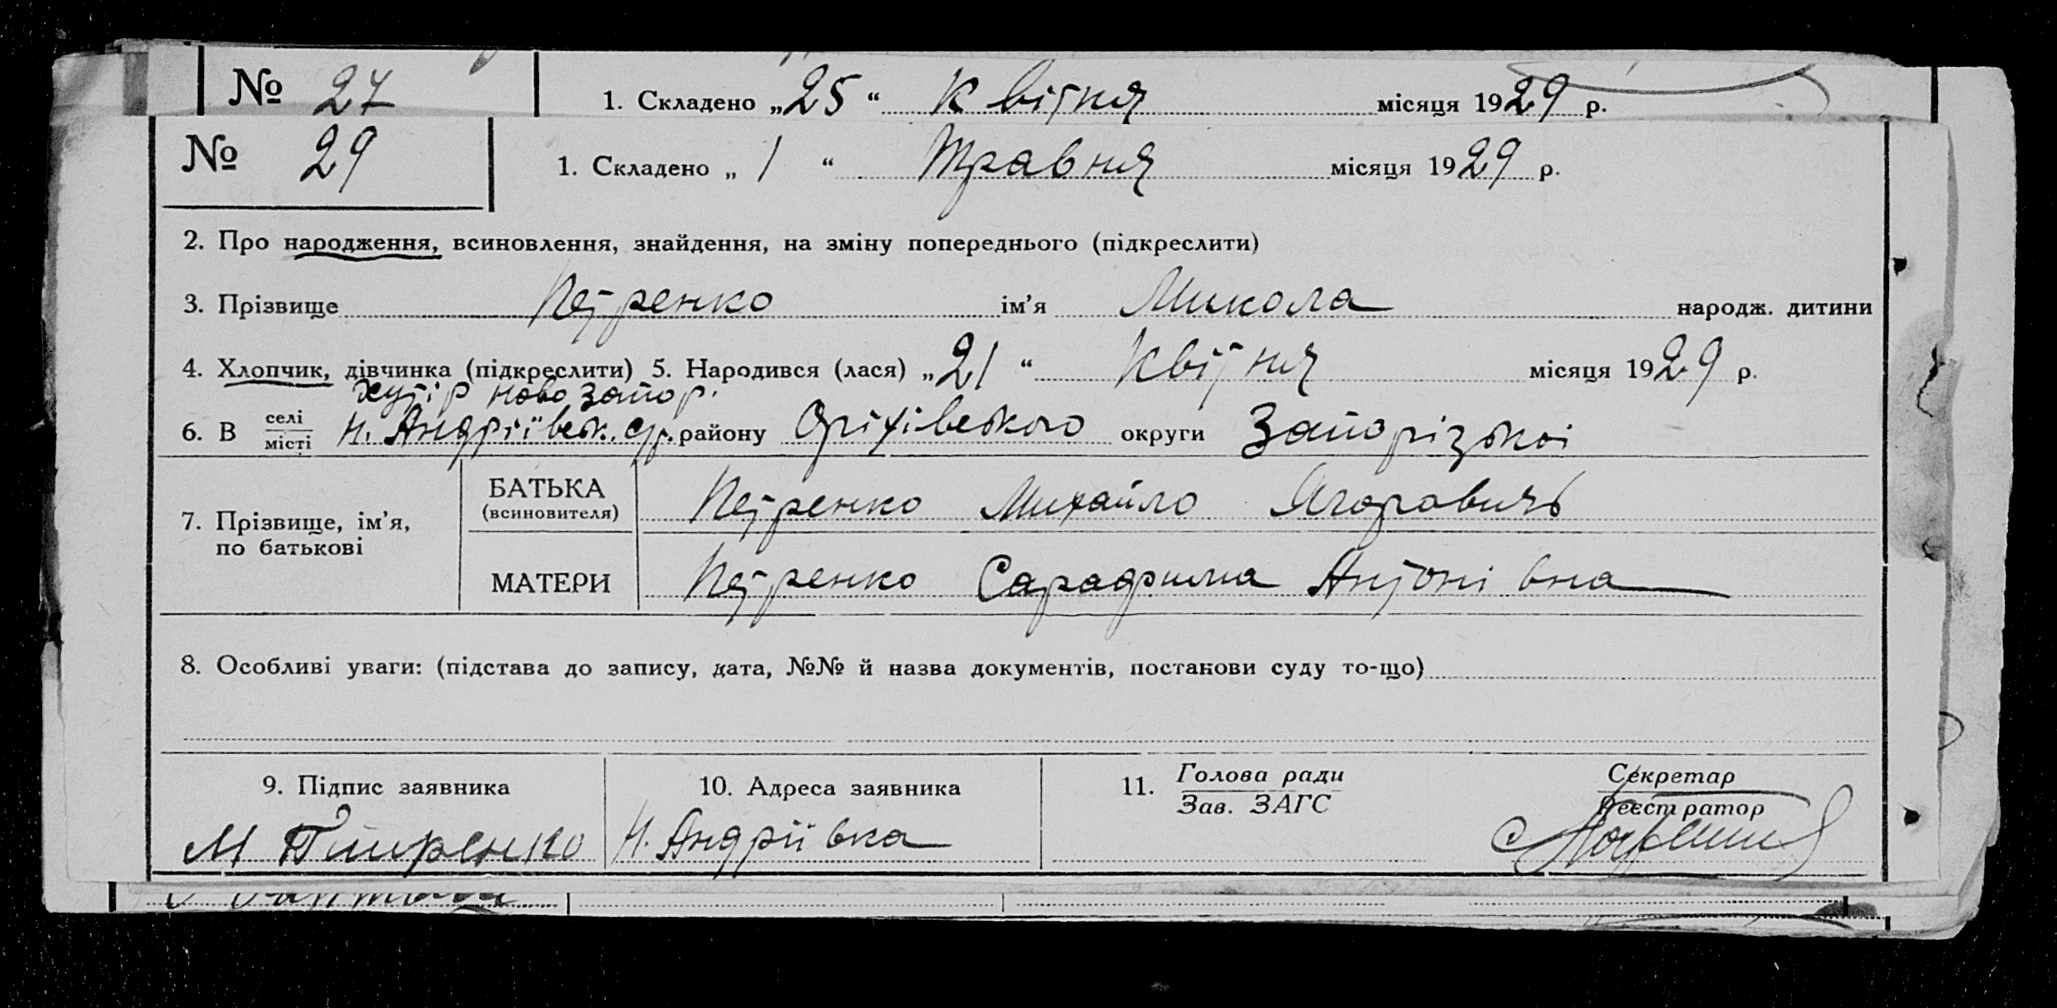 № 27 1. Складено „25“ Квітня місяця 1929 р.
№ 29 1. Складено „1“ Травня місяця 1929 р.
2. Про народження, всиновлення, знайдення, на зміну попереднього (підкреслити)
3. Прізвище Петренко ім'я Микола народж. дитини
4. Хлопчик, дівчинка (підкреслити) 5. Народився (лася) „21“ Квітня місяця 1929 р.
хутір ново запор.
6. В селі/місті Н. Андріївськ. с/р. району Оріхівського округи Запорізької
7. Прізвище, ім'я, по батькові
БАТЬКА (всиновителя) Петренко Михайло Ягоровичь
МАТЕРИ Петренко Сарафима Антонівна
8. Особливі уваги: (підстава до запису, дата, №№ й назва документів, постанови суду то-що)
9. Підпис заявника 10. Адреса заявника 11. Голова ради Секретар
Зав. ЗАГС Реєстратор
М Питренко Н. Андріівка